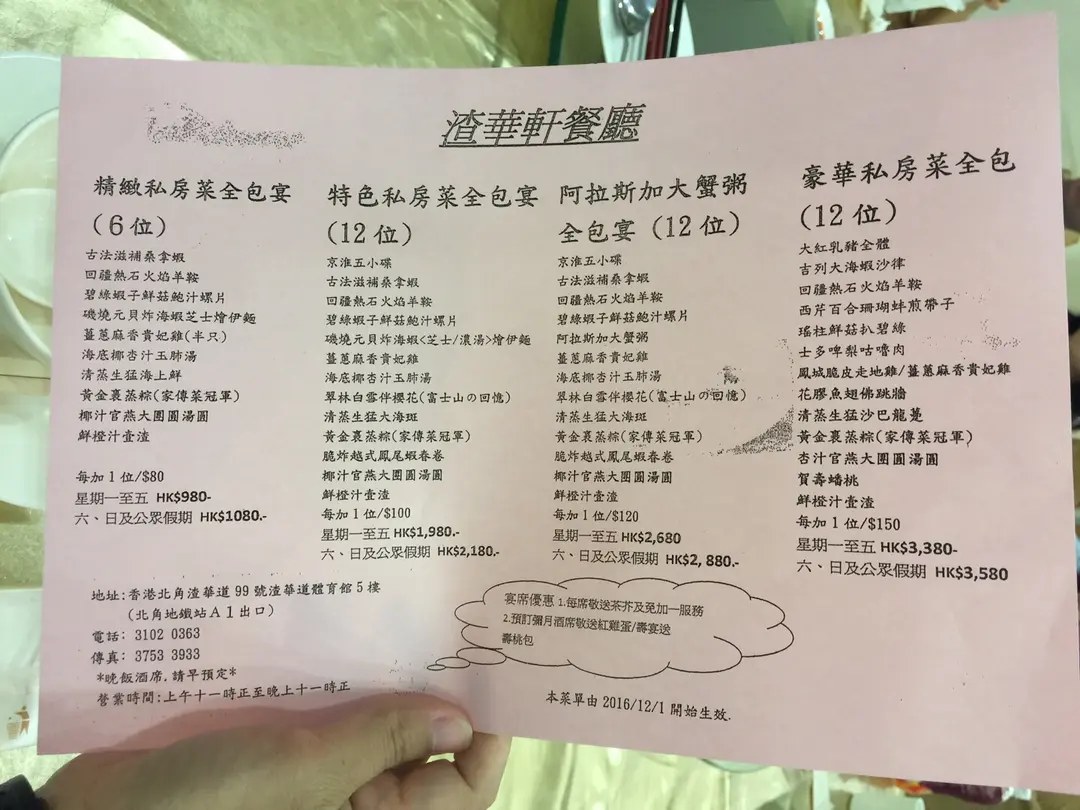 渣華軒餐廳
精緻私房菜全包宴
(6位)
古法滋補桑拿蝦
回疆熱石火焰羊鞍
碧綠蝦子鮮菇鮑汁螺片
磯燒元貝炸海蝦芝士燴伊麵
薑蔥麻香貴妃雞(半只)
海底椰杏汁玉肺湯
清蒸生猛海上鮮
黃金裹蒸粽(家傳菜冠軍)
椰汁官燕大團圓湯圓
鮮橙汁壹渣
每加1位/$80
星期一至五 HK$980-
六、日及公眾假期 HK$1080.-
特色私房菜全包宴
(12位)
京淮五小碟
古法滋補桑拿蝦
回疆熱石火焰羊鞍
碧綠蝦子鮮菇鮑汁螺片
磯燒元貝炸海蝦<芝士/濃湯>燴伊麵
薑蔥麻香貴妃雞
海底椰杏汁玉肺湯
翠林白雪伴櫻花(富士山の回憶)
清蒸生猛大海斑
黃金裹蒸粽(家傳菜冠軍)
脆炸越式鳳尾蝦春卷
椰汁官燕大團圓湯圓
鮮橙汁壹渣
每加1位/$100
星期一至五 HK$1,980.-
六、日及公眾假期 HK$2,180.-
阿拉斯加大蟹粥
全包宴(12位)
京淮五小碟
古法滋補桑拿蝦
回疆熱石火焰羊鞍
碧綠蝦子鮮菇鮑汁螺片
阿拉斯加大蟹粥
薑蔥麻香貴妃雞
海底椰杏汁玉肺湯
翠林白雪伴櫻花(富士山の回憶)
清蒸生猛大海斑
黃金裹蒸粽(家傳菜冠軍)
脆炸越式鳳尾蝦春卷
椰汁官燕大團圓湯圓
鮮橙汁壹渣
每加1位/$120
星期一至五 HK$2,680
六、日及公眾假期 HK$2,880.-
豪華私房菜全包
(12位)
大紅乳豬全體
吉列大海蝦沙律
回疆熱石火焰羊鞍
西芹百合珊瑚蚌煎帶子
瑤柱鮮菇扒碧綠
士多啤梨咕嚕肉
鳳城脆皮走地雞/薑蔥麻香貴妃雞
花膠魚翅佛跳牆
清蒸生猛沙巴龍躉
黃金裹蒸粽(家傳菜冠軍)
杏汁官燕大團圓湯圓
賀壽蟠桃
鮮橙汁壹渣
每加1位/$150
星期一至五 HK$3,380-
六、日及公眾假期 HK$3,580
地址:香港北角渣華道99號渣華道體育館5樓
(北角地鐵站A1出口)
電話: 3102 0363
傳真: 3753 3933
*晚飯酒席,請早預定*
營業時間:上午十一時正至晚上十一時正
宴席優惠 1.每席敬送茶芥及免加一服務
2.預訂彌月酒席敬送紅雞蛋/壽宴送
壽桃包
本菜單由 2016/12/1 開始生效.